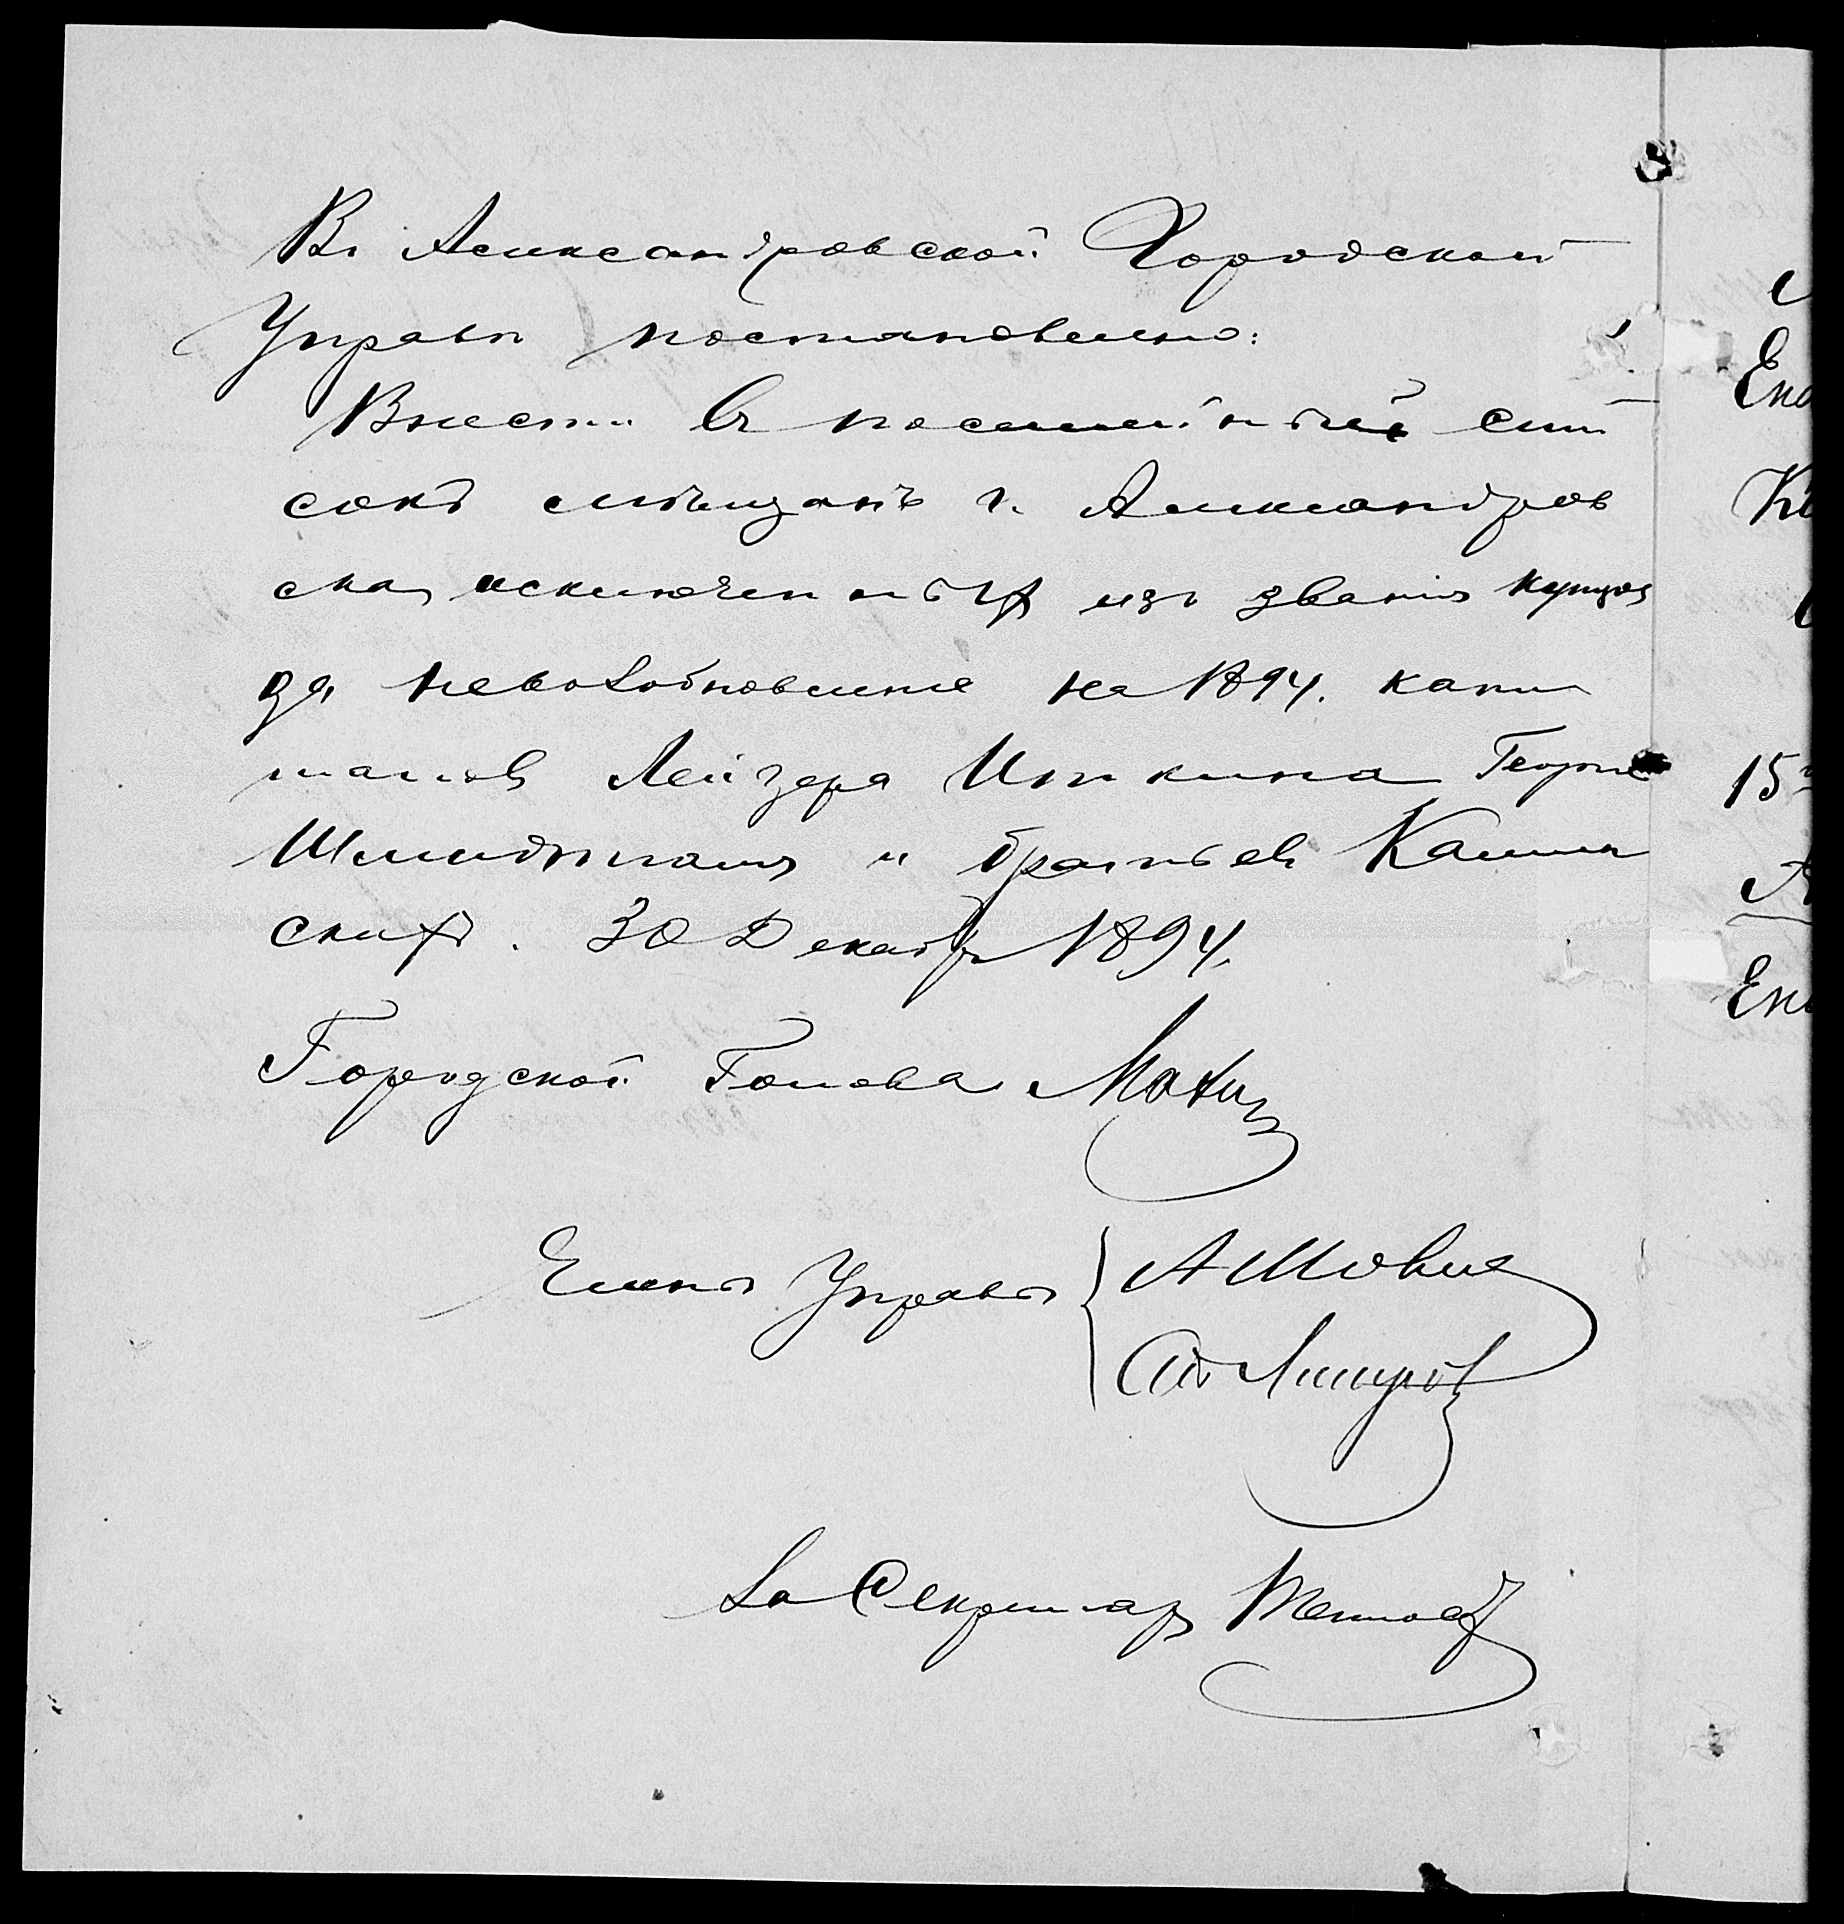 Въ Александровской Городской
Управѣ постановлено:
Внести въ посемейный спи
сокъ мѣщанъ г. Александров
ска, исключенныхъ изъ званія купцовъ
за невозобновленіе на 1894. капи
таловъ Лейзера Иткина Георгія
и братьевъ Камин
скихъ. 30 Декабря 1894.
Городской Голова
Члены Управы
За Секретаря
Ека
15